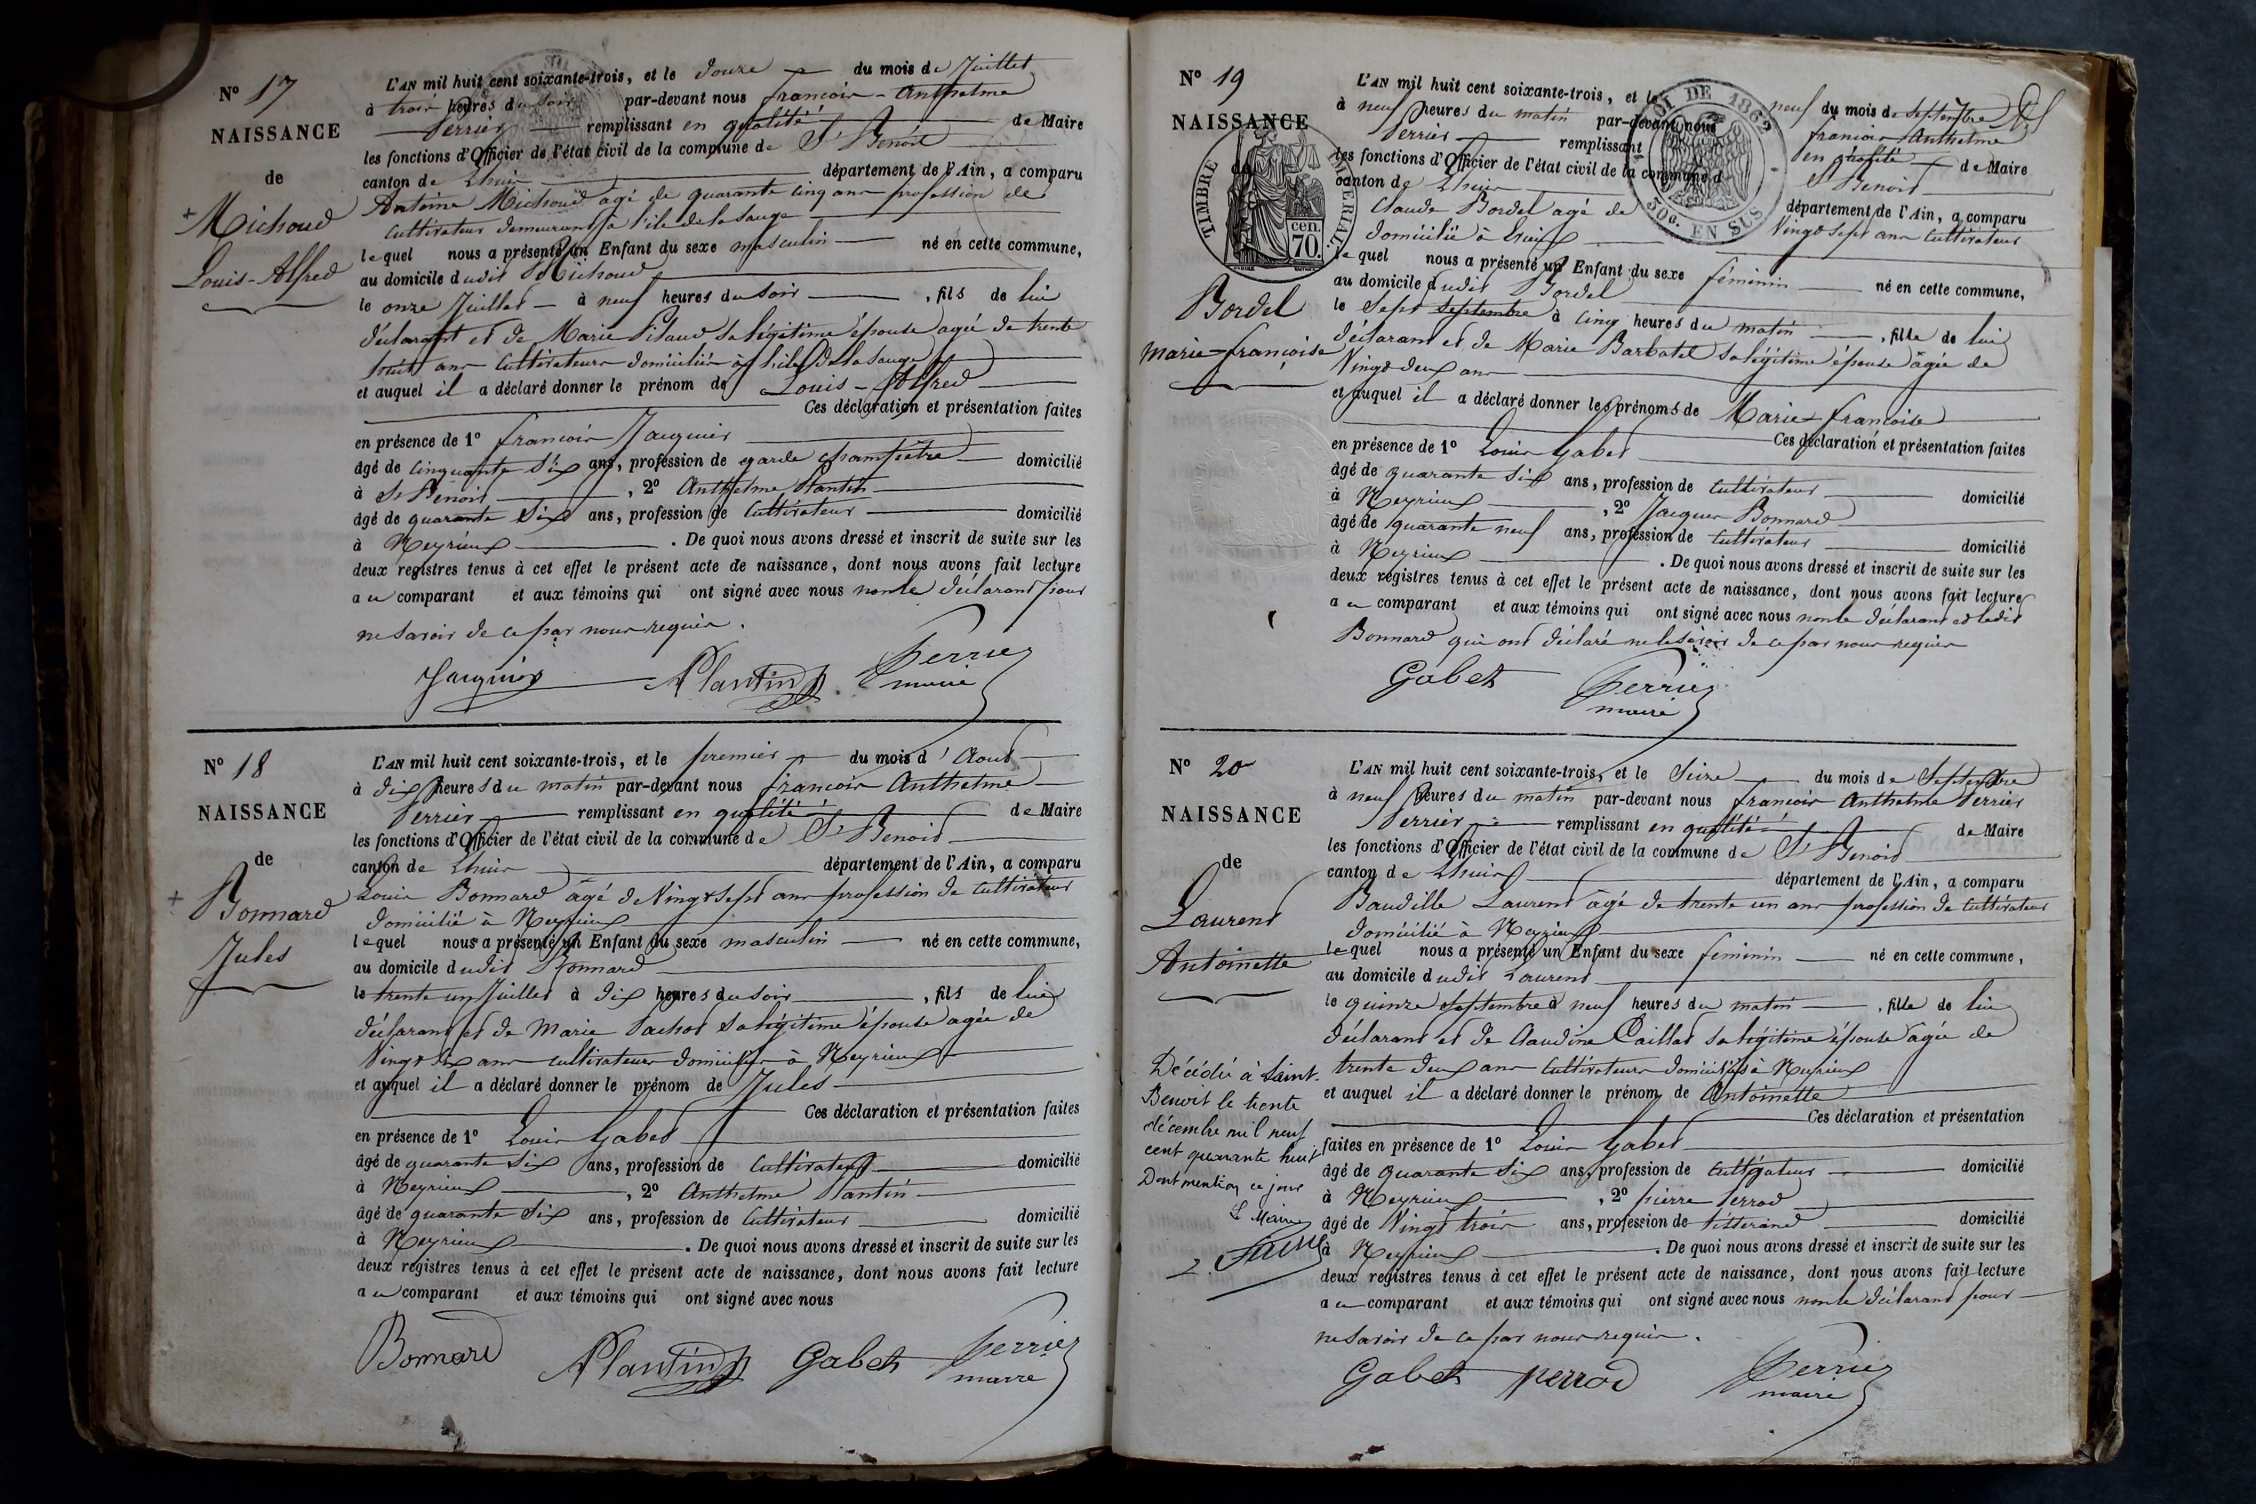 N° 17
NAISSANCE
de
Michoud
Louis-Alfred
L'AN mil huit cent soixante-trois, et le douze du mois de Juillet
à trois heures du soir par-devant nous françois-Anthelme
Perrier remplissant en qualité de Maire
les fonctions d'Officier de l'état civil de la commune de St Benoit
canton de Lhuis département de l'Ain, a comparu
Antoine Michoud agé de quarante cinq ans profession de
cultivateur demeurant à l'ile de la Sauge
lequel nous a présenté un Enfant du sexe masculin né en cette commune,
au domicile dudit Michoud
le onze Juillet à neuf heures du soir , fils de lui
déclarant et de Marie sa légitime épouse agée de trente
huit ans cultivateurs domiciliés à l'ile de la Sauge
et auquel il a déclaré donner le prénom de Louis-Alfred
Ces déclaration et présentation faites
en présence de 1° françois Jacquier
âgé de cinquante six ans, profession de garde champêtre domicilié
à St Benoit , 2° Anthelme Plantin
âgé de quarante six ans, profession de cultivateur domicilié
à Neyrieux . De quoi nous avons dressé et inscrit de suite sur les
deux registres tenus à cet effet le présent acte de naissance, dont nous avons fait lecture
au comparant et aux témoins qui ont signé avec nous non le déclarant pour
ne savoir de ce par nous requis.
Jacquier Plantin Perrier
maire
N° 18
NAISSANCE
de
Bonnard
Jules
L'AN mil huit cent soixante-trois, et le premier du mois d'Aout
à dix heures du matin par-devant nous françois Anthelme
Perrier remplissant en qualité de Maire
les fonctions d'Officier de l'état civil de la commune de St Benoit
canton de Lhuis département de l'Ain, a comparu
Louis Bonnard âgé de Vingt sept ans profession de cultivateur
domicilié à Neyrieux
lequel nous a présenté un Enfant du sexe masculin né en cette commune,
au domicile dudit Bonnard
le trente un Juillet à dix heures du soir , fils de lui
déclarant et de Marie Pachod sa légitime épouse agée de
Vingt six ans cultivateurs domiciliés à Neyrieux
et auquel il a déclaré donner le prénom de Jules
Ces déclaration et présentation faites
en présence de 1° Louis Gabet
âgé de quarante six ans, profession de cultivateur domicilié
à Neyrieux , 2° Anthelme Plantin
âgé de quarante six ans, profession de cultivateur domicilié
à Neyrieux . De quoi nous avons dressé et inscrit de suite sur les
deux registres tenus à cet effet le présent acte de naissance, dont nous avons fait lecture
au comparant et aux témoins qui ont signé avec nous
Bonnard Plantin Gabet Perrier
maire
N° 19
NAISSANCE
de
TIMBRE IMPERIAL.
70 cen.
LOI DE 1862
50c. EN SUS
Bordel
marie-françoise
L'AN mil huit cent soixante-trois, et le neuf du mois de Septembre
à neuf heures du matin par-devant nous françois Anthelme
Perrier remplissant en qualité de Maire
les fonctions d'Officier de l'état civil de la commune d St Benoit
canton de Lhuis département de l'Ain, a comparu
Claude Bordel agé de Vingt sept ans cultivateur
domicilié à
lequel nous a présenté un Enfant du sexe féminin né en cette commune,
au domicile dudit Bordel
le Sept septembre à cinq heures du matin , fille de lui
déclarant et de Marie Barbatel sa légitime épouse âgée de
Vingt deux ans
et auquel il a déclaré donner les prénoms de Marie-françoise
Ces déclaration et présentation faites
en présence de 1° Louis Gabet
âgé de quarante six ans, profession de cultivateur domicilié
à Neyrieux , 2° Jacques Bonnard
âgé de quarante neuf ans, profession de cultivateur domicilié
à Neyrieux . De quoi nous avons dressé et inscrit de suite sur les
deux registres tenus à cet effet le présent acte de naissance, dont nous avons fait lecture
au comparant et aux témoins qui ont signé avec nous non le déclarant et ledit
Bonnard qui ont déclaré ne le savoir de ce par nous requis
Gabet Perrier
maire
N° 20
NAISSANCE
de
Laurent
Antoinette
Décédée à Saint-
Benoit le trente
décembre mil neuf
cent quarante huit
Dont mention ce jour
Le Maire
L'AN mil huit cent soixante-trois, et le Seize du mois de Septembre
à neuf heures du matin par-devant nous françois Anthelme Perrier
Perrier remplissant en qualité de Maire
les fonctions d'Officier de l'état civil de la commune de St Benoit
canton de Lhuis département de l'Ain, a comparu
Baudille Laurent âgé de trente un ans profession de cultivateur
domicilié à Neyrieux
lequel nous a présenté un Enfant du sexe féminin né en cette commune,
au domicile dudit Laurent
le quinze septembre à neuf heures du matin , fille de lui
déclarant et de Claudine Caillat sa légitime épouse agée de
trente deux ans cultivateurs domiciliés à Neyrieux
et auquel il a déclaré donner le prénom de Antoinette
Ces déclaration et présentation
faites en présence de 1° Louis Gabet
âgé de quarante six ans, profession de cultivateur domicilié
à Neyrieux , 2° pierre Perrod
âgé de Vingt trois ans, profession de tisserand domicilié
à Neyrieux . De quoi nous avons dressé et inscrit de suite sur les
deux registres tenus à cet effet le présent acte de naissance, dont nous avons fait lecture
au comparant et aux témoins qui ont signé avec nous non le déclarant pour
ne savoir de ce par nous requis.
Gabet Perrod Perrier
maire